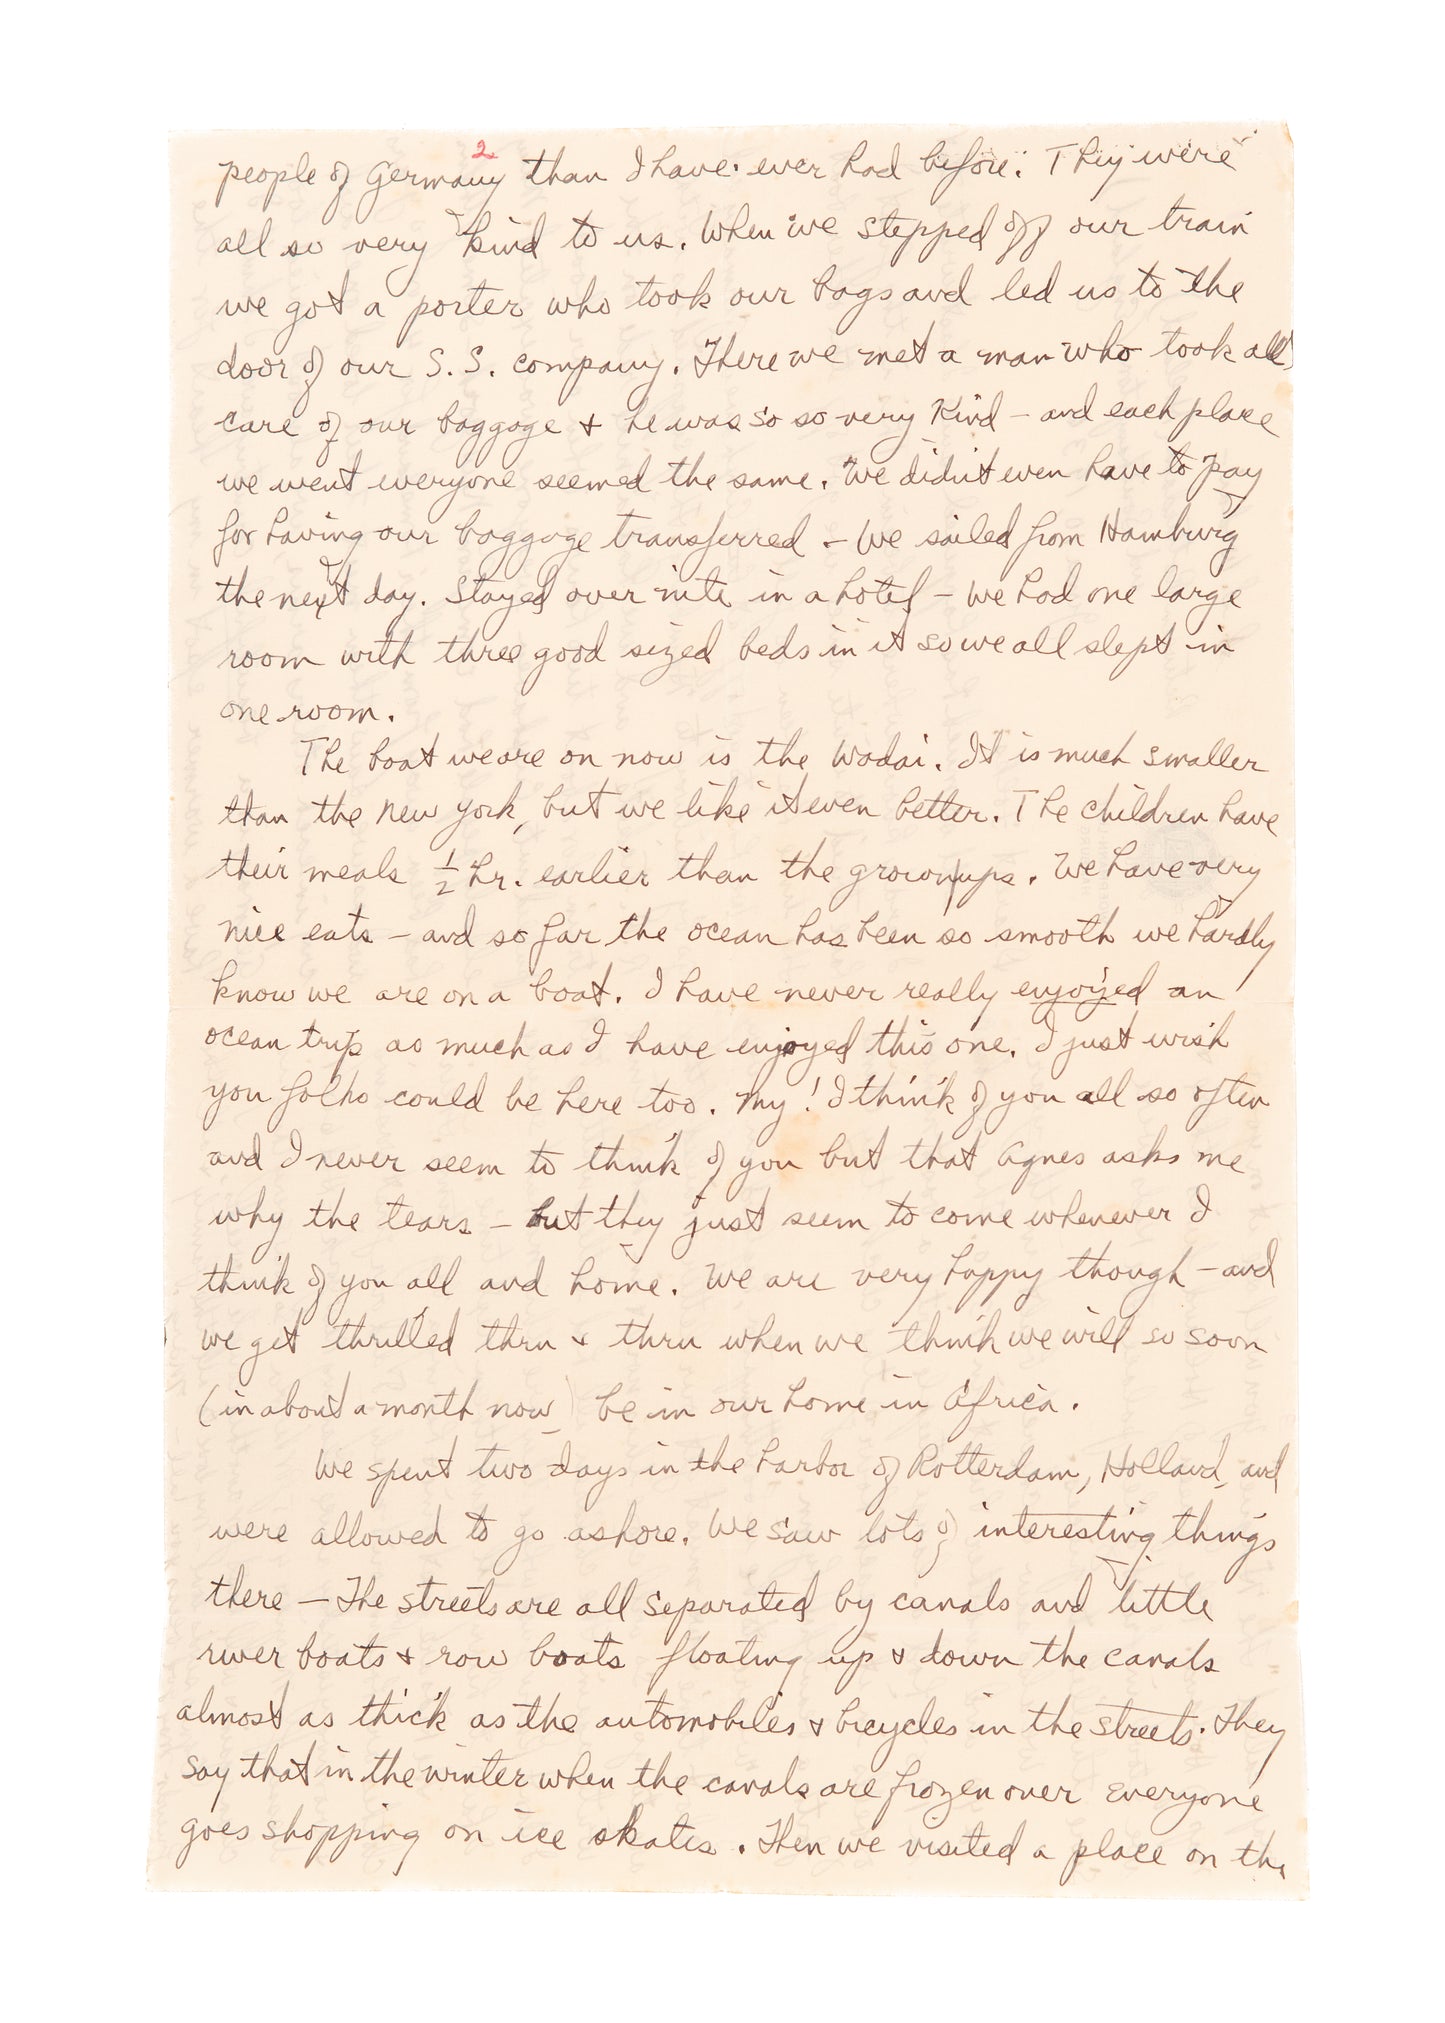 2
people of Germany than I have ever had before. They were
all so very kind to us. When we stepped off our train
we got a porter who took our bags and led us to the
door of our S.S. company. There we met a man who took all
care of our baggage & he was so so very kind - and each place
we went everyone seemed the same. We didn't even have to pay
for having our baggage transferred - We sailed from Hamburg
the next day. Stayed over nite in a hotel - We had one large
room with three good sized beds in it so we all slept in
one room.
The boat we are on now is the Wadai. It is much smaller
than the New York, but we like it even better. The children have
their meals ½ hr. earlier than the grownups. We have very
nice eats - and so far the ocean has been so smooth we hardly
know we are on a boat. I have never really enjoyed an
ocean trip as much as I have enjoyed this one. I just wish
you folks could be here too. My! I think of you all so often
and I never seem to think of you but that Agnes asks me
why the tears - but they just seem to come whenever I
think of you all and home. We are very happy though - and
we get thrilled thru & thru when we think we will so soon
(in about a month now) be in our home in Africa.
We spent two days in the harbor of Rotterdam, Holland, and
were allowed to go ashore. We saw lots of interesting things
there - The streets are all separated by canals and little
river boats & row boats floating up & down the canals
almost as thick as the automobiles & bicycles in the streets. They
say that in the winter when the canals are frozen over everyone
goes shopping on ice skates. Then we visited a place on the